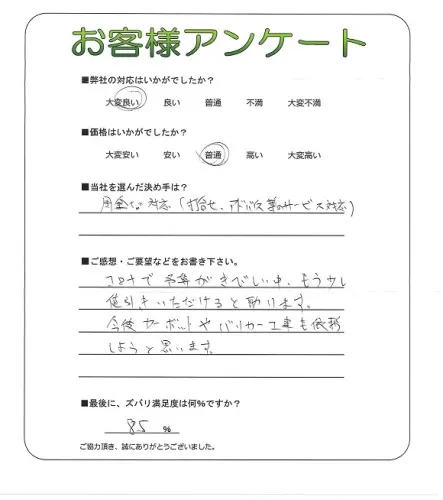 お客様アンケート
■弊社の対応はいかがでしたか？
大変良い 良い 普通 不満 大変不満
■価格はいかがでしたか？
大変安い 安い 普通 高い 大変高い
■当社を選んだ決め手は？
対応（打合せ、アドバイス等のサービス対応）
■ご感想・ご要望などをお書き下さい。
コロナで予算がきびしい中、もう少し
値引きいただけると助ります。
今後カーポットやバリカー工事も依頼
しようと思います
■最後に、ズバリ満足度は何％ですか？
85 %
ご協力頂き、誠にありがとうございました。